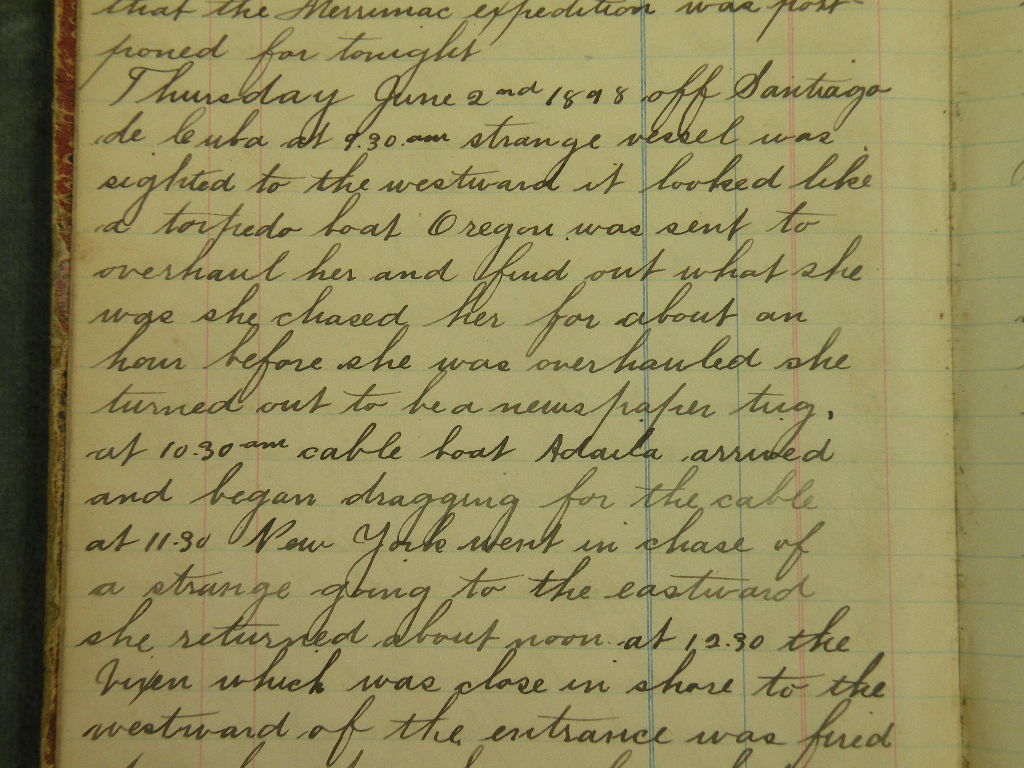 that the Merrimac expedition was post-
poned for tonight
Thursday June 2nd 1898 off Santiago
de Cuba at 9.30.am strange vessel was
sighted to the westward it looked like
a torpedo boat Oregon was sent to
overhaul her and find out what she
was she chased her for about an
hour before she was overhauled she
turned out to be a newspaper tug.
at 10.30 am cable boat Adaila arrived
and began dragging for the cable
at 11.30 New York went in chase of
a strange going to the eastward
she returned about noon at 12.30 the
Vixen which was close in shore to the
westward of the entrance was fired